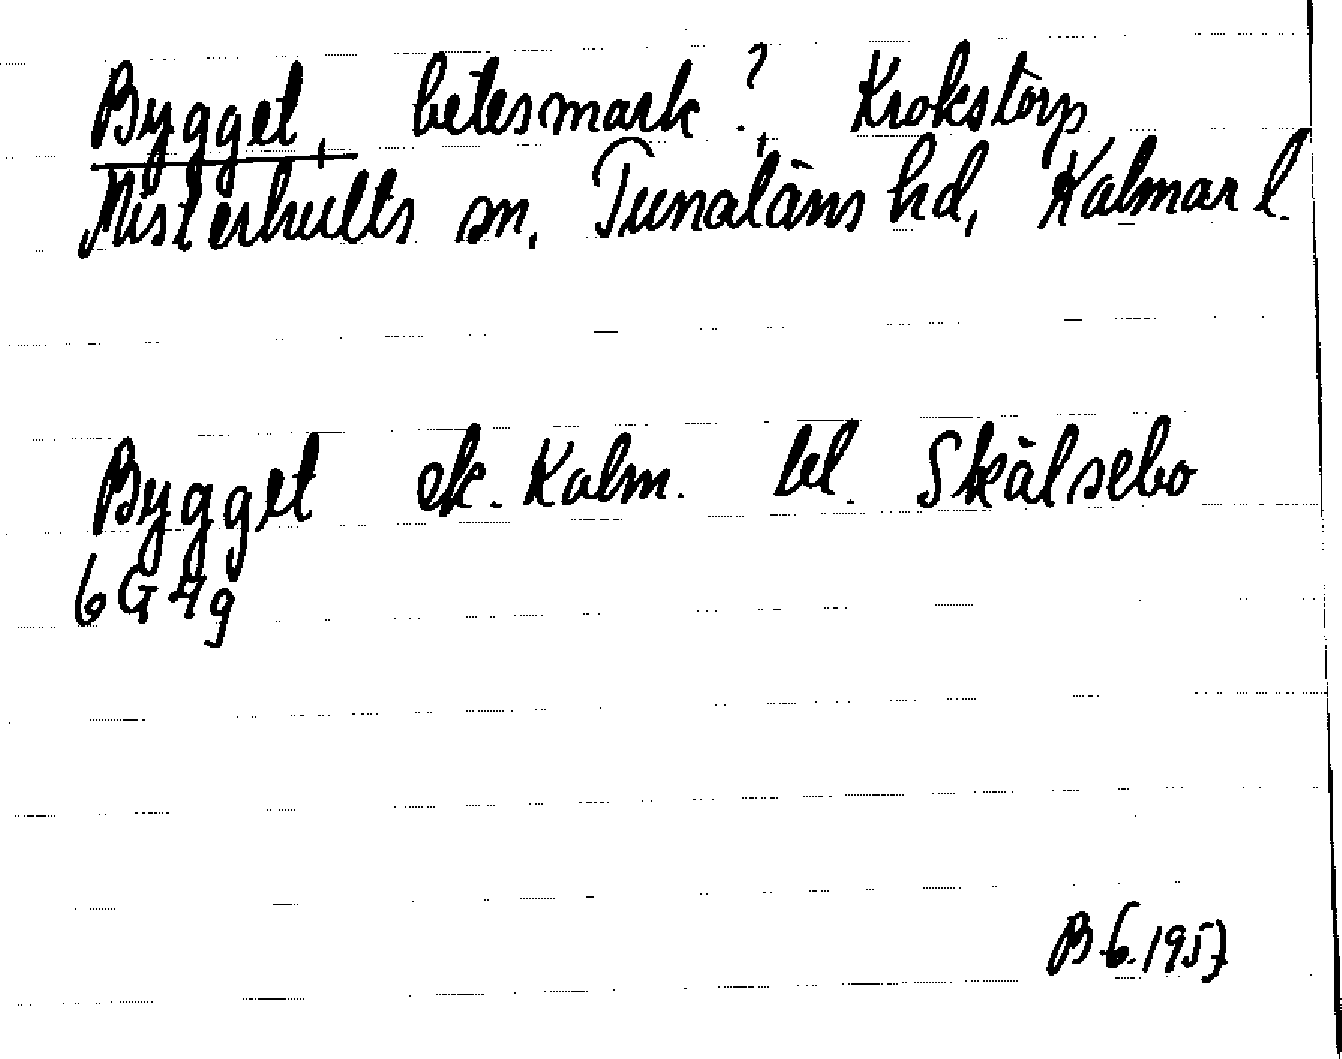 Bygget, betesmark?, Krokstorp
Misterhults sn, Tunaläns hd, Kalmar l.
Bygget ek. Kalm. bl. Skälsebo
6G4g
BG.1957